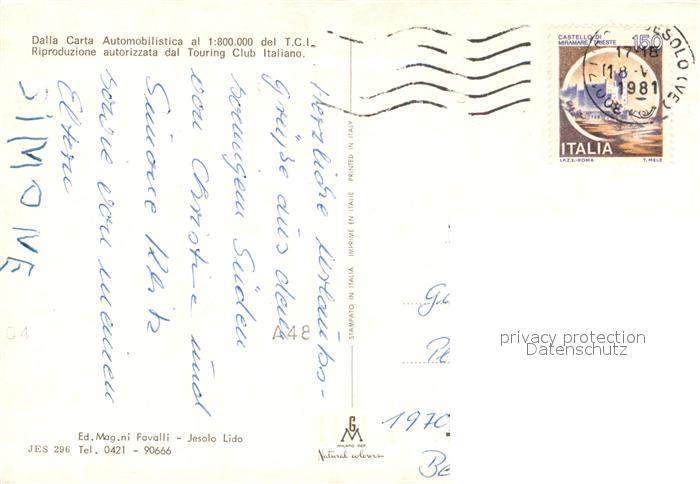 Dalla Carta Automobilistica al 1:800.000 del T.C.I.
Riproduzione autorizzata dal Touring Club Italiano.
Herzliche Urlaubs-
grüße aus dem
sonnigen Süden
von Christine und
Simone
sowie von meinen
Eltern
SiMONE
04
A48
Ed. Mag.ni Favalli - Jesolo Lido
JES 296 Tel. 0421 - 90666
STAMPATO IN ITALIA IMPRIMÉ EN ITALIE PRINTED IN ITALY
GM
MILANO DEP.
Natural colours
CASTELLO DI
MIRAMARE/TRIESTE
150
ITALIA
I.P.Z.S.-ROMA
T. MELE
JESOLO (VE)
17-18
18-V
1981
privacy protection
Datenschutz
1970